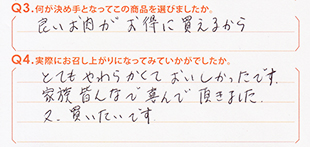 Q3.何が決め手となってこの商品を選びましたか。
良いお肉がお得に買えるから
Q4.実際にお召し上がりになってみていかがでしたか。
とてもやわらかくておいしかったです。
家族皆んなで喜んで頂きました。
又、買いたいです